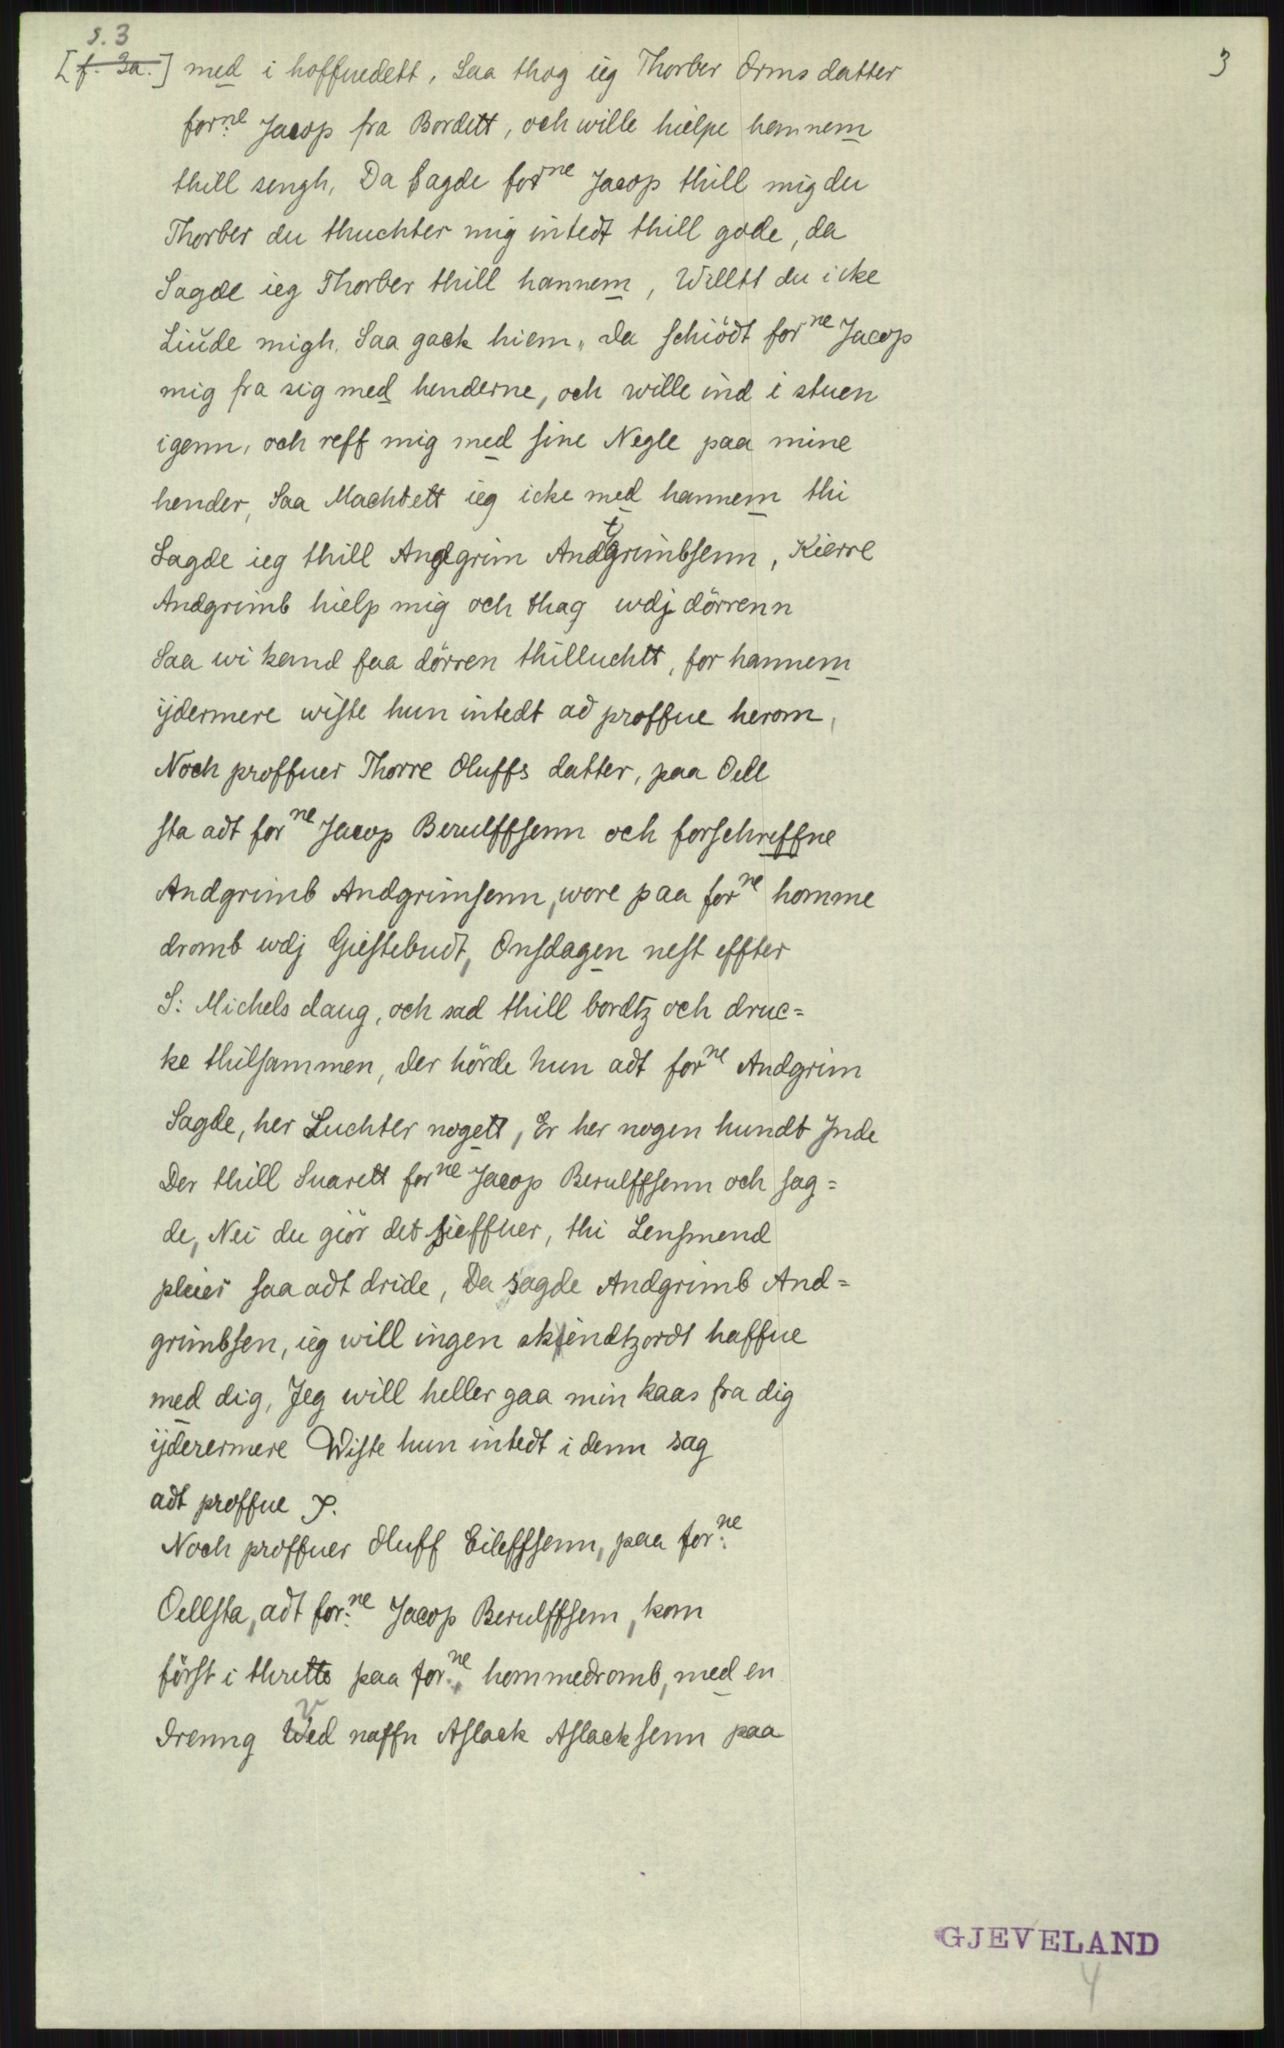 s. 3
[f. 3a.] med i hoffuedett, Saa thog ieg Thorber Orms datter
3
for:ne Jacop fra Bordett, och wille hielpe hannem
thill sengh, Da Sagde forne Jacop thill mig du
Thorber du thuchter mig intedt thill gode, da
Sagde ieg Thorber thill hannem, Willtt du icke
Liude migh. Saa gack hiem, da schiödt forne Jacop
mig fra sig med henderne, och wille ind i stuen
igenn, och reff mig med sine Negle paa mine
hender, Saa Machtett ieg icke med hannem thi
Sagde ieg thill Andgrim Andgrimbsenn, Kierre
Andgrimb hielp mig och thag wdj dörrenn
Saa wi kand faa dörren thilluchtt, for hannem
ijdermere wiste hun intedt ad proffue herom,
Noch proffuer Thorre Oluffs datter, paa Oell
sta adt forne Jacop Berulffsenn och forschreffne
Andgrimb Andgrimsenn, wore paa forne homme
dromb wdj Giestebudt, Onsdagen nest effter
S: Michels daug, och sad thill bordtz och druc=
ke thilsammen, der hörde hun adt forne Andgrim
Sagde, her Luchter nogett, Er her nogen hundt Jnde
Der thill Suarett forne Jacop Berulffsenn och sag=
de, Nei du giör det sieffuer, thi Lensmend
pleier saa adt dride, Da sagde Andgrimb And=
grimbsen, ieg will ingen skiendtzordt haffue
med dig, Jeg will heller gaa min kaas fra dig
ijderermere Wiste hun intedt i denn sag
adt proffue
Noch proffuer Oluff Eileffsenn, paa for:ne
Oellsta, adt for:ne Jacop Berulffsenn, kom
först i thrette paa for:ne hommedromb, med en
drenng Wed naffn Aslack Aslacksenn paa
GJEVELAND
4